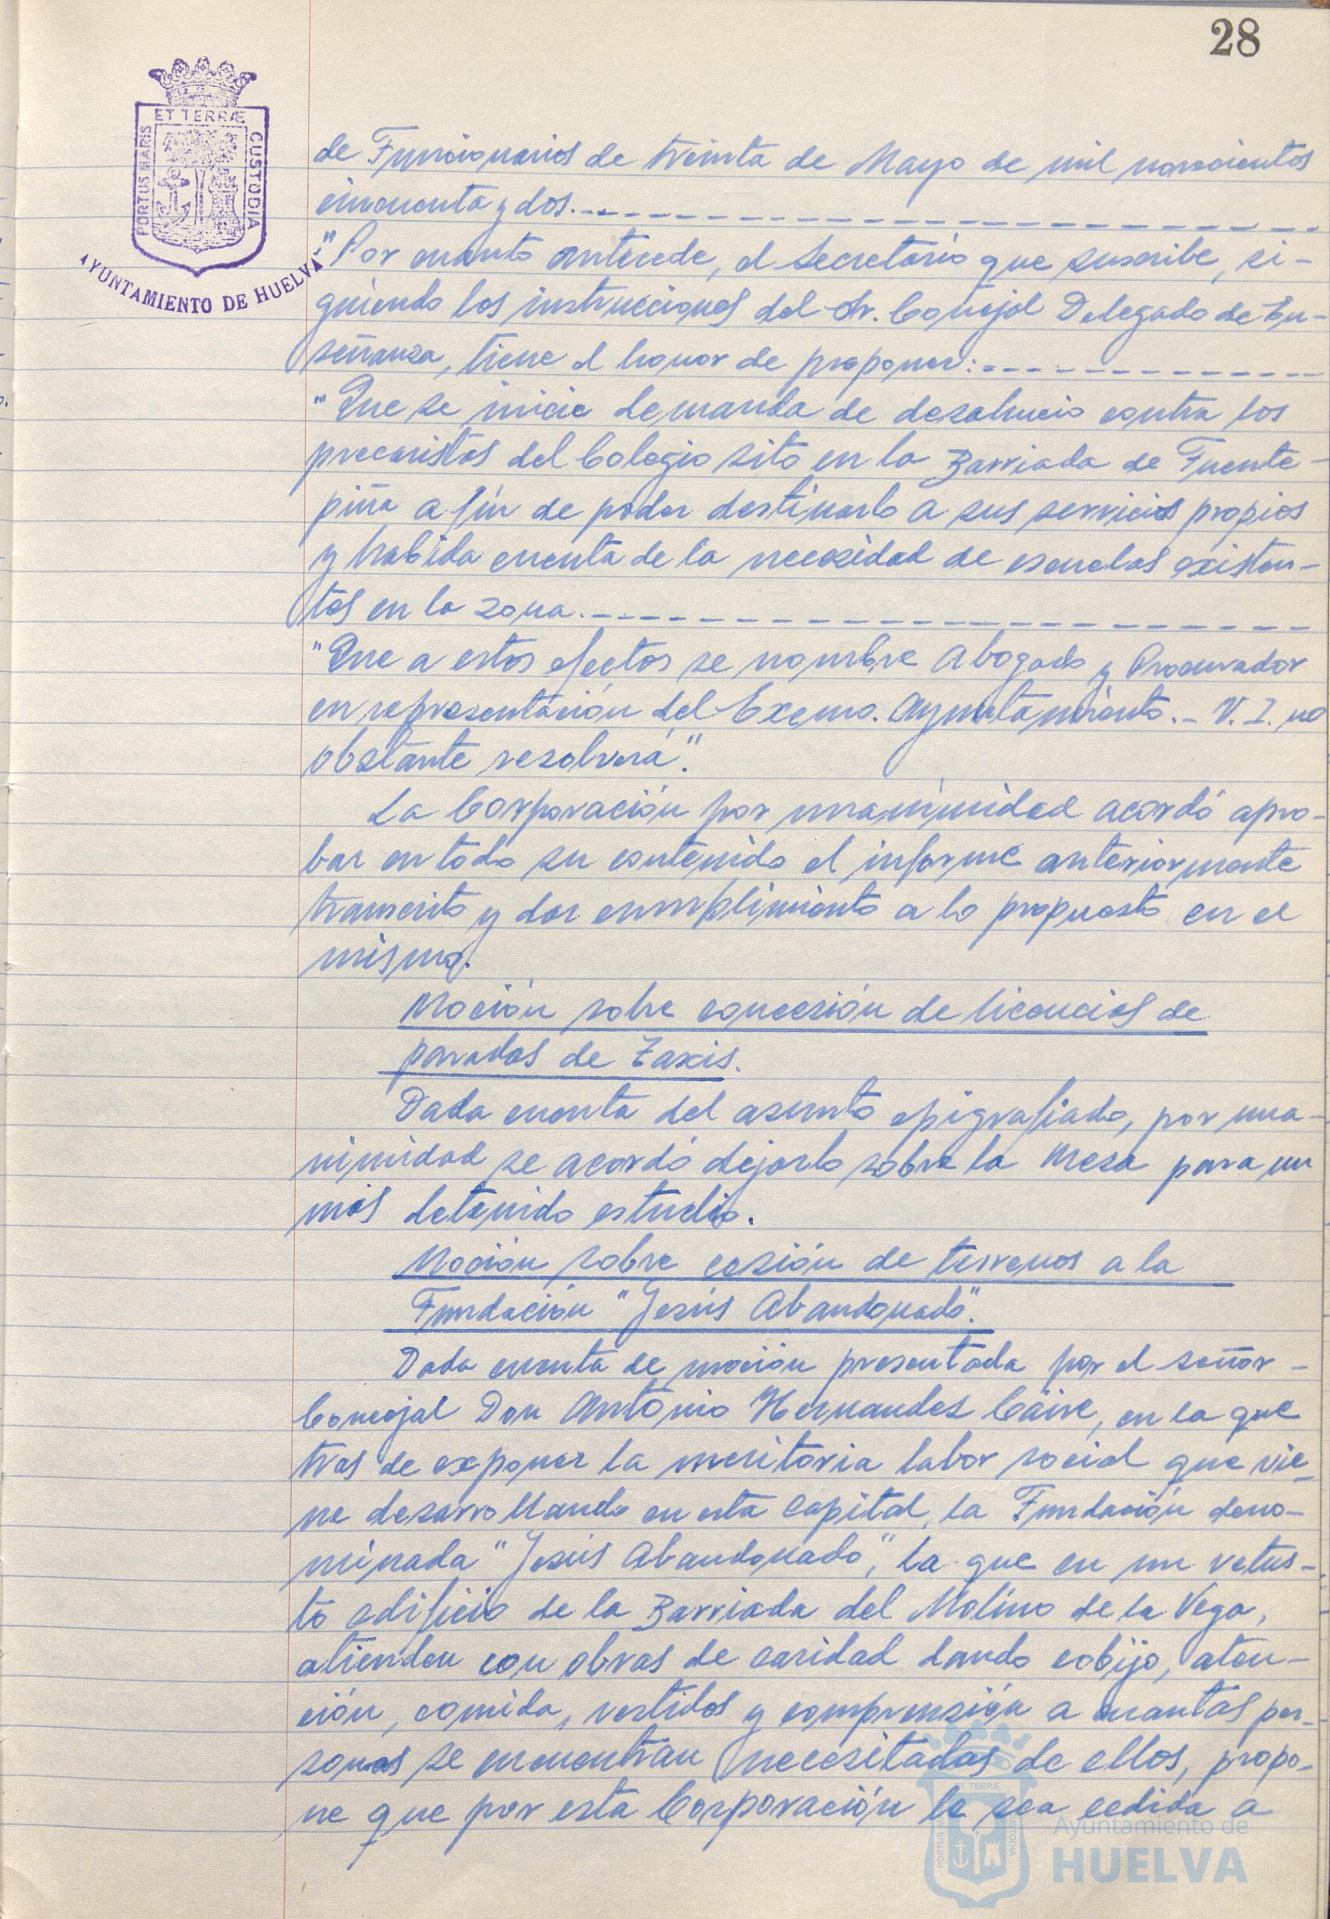 28
ET TERRÆ
PORTUS MARIS
CUSTODIA
AYUNTAMIENTO DE HUELVA
de Funcionarios de treinta de Mayo de mil novecientos
cincuenta y dos.
"Por cuanto antecede, el Secretario que suscribe, si-
guiendo las instrucciones del Sr. Concejal Delegado de En-
señanza, tiene el honor de proponer:
"Que se inicie demanda de desahucio contra los
precaristas del Colegio sito en la Barriada de Fuente-
piña a fin de poder destinarlo a sus servicios propios
y habida cuenta de la necesidad de escuelas existen-
tes en la zona.
"Que a estos efectos se nombre Abogado y Procurador
en representación del Excmo. Ayuntamiento.- V. I. no
obstante resolverá".
La Corporación por unanimidad acordó apro-
bar en todo su contenido el informe anteriormente
transcrito y dar cumplimiento a lo propuesto en el
mismo.
Moción sobre concesión de licencias de
paradas de Taxis.
Dada cuenta del asunto epigrafiado, por una-
nimidad se acordó dejarlo sobre la Mesa para un
más detenido estudio.
Moción sobre cesión de terrenos a la
Fundación "Jesús Abandonado".
Dada cuenta de moción presentada por el señor-
Concejal Don Antonio Hernandez Caire, en la que
tras de exponer la meritoria labor social que vie-
ne desarrollando en esta Capital, la Fundación deno-
minada "Jesús Abandonado", la que en un vetus-
to edificio de la Barriada del Molino de la Vega,
atienden con obras de caridad dando cobijo, aten-
ción, comida, vestidos y comprensión a cuantas per-
sonas se encuentran necesitadas de ellos, propo-
ne que por esta Corporación le sea cedida a
ET TERRÆ
PORTUS MARIS
CUSTODIA
Ayuntamiento de
HUELVA